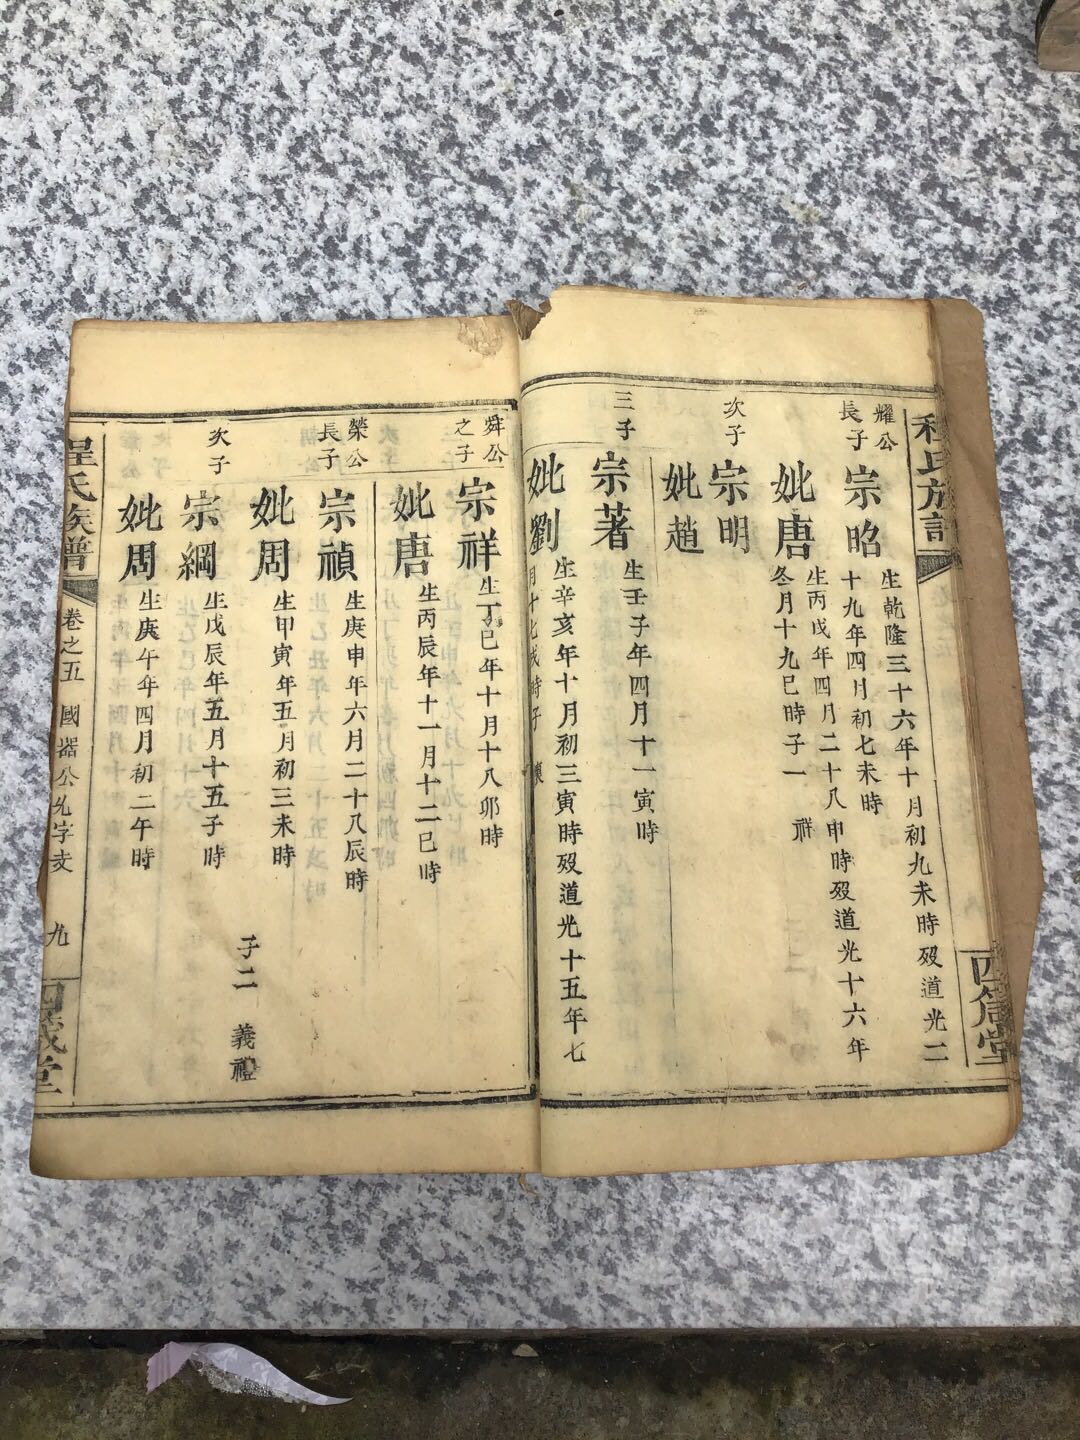 程氏族譜
四箴堂
耀公長子
宗昭
生乾隆三十六年十月初九未時歿道光二
十九年四月初七未時
妣唐
生丙戌年四月二十八申時歿道光十六年
冬月十九巳時子一 祥
次子
宗明
妣趙
三子
宗著
生壬子年四月十一寅時
妣劉
生辛亥年十月初三寅時歿道光十五年七
月十七戌時子
舜公之子
宗祥
生丁巳年十月十八卯時
妣唐
生丙辰年十一月十二巳時
榮公長子
宗禎
生庚申年六月二十八辰時
妣周
生甲寅年五月初三未時
子二 義禮
次子
宗綱
生戊辰年五月十五子時
妣周
生庚午年四月初二午時
程氏族譜
卷之五 國器公允字支
九
四箴堂